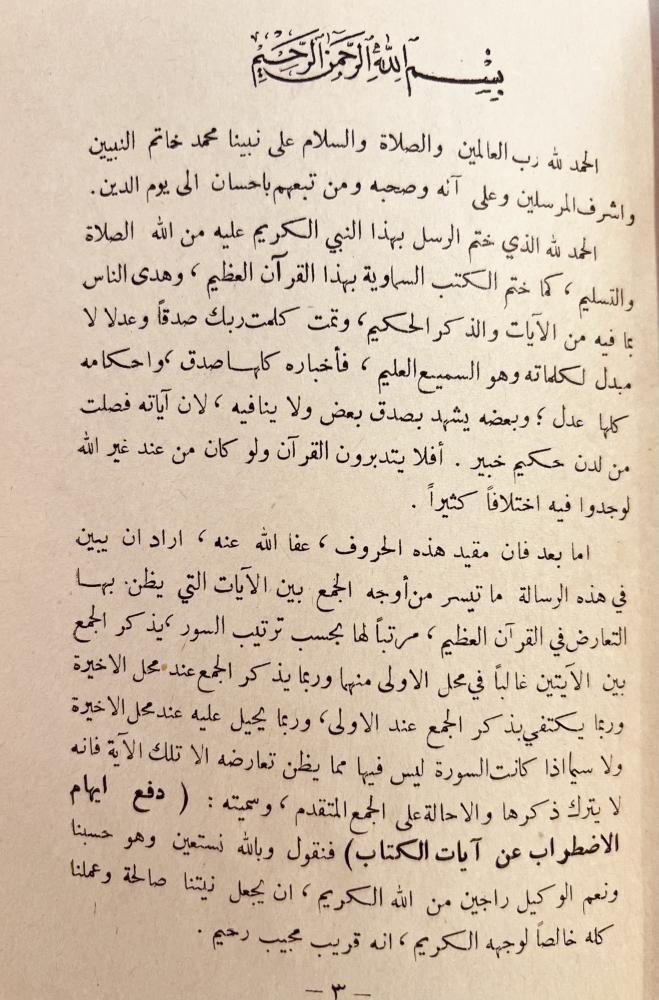 بسم الله الرحمن الرحيم
الحمد لله رب العالمين والصلاة والسلام على نبينا محمد خاتم النبيين
واشرف المرسلين وعلى آنه وصحبه ومن تبعهم باحسان الى يوم الدين.
الحمد لله الذي ختم الرسل بهذا النبي الكريم عليه من الله الصلاة
والتسليم ، كما ختم الكتب السماوية بهذا القرآن العظيم ، وهدى الناس
بما فيه من الآيات والذكر الحكيم، وتمت كلمت ربك صدقاً وعدلا لا
مبدل لكلماته وهو السميع العليم ، فأخباره كلها صدق ، واحكامه
كلها عدل ؛ وبعضه يشهد بصدق بعض ولا ينافيه ، لان آياته فصلت
من لدن حكيم خبير . أفلا يتدبرون القرآن ولو كان من عند غير الله
لوجدوا فيه اختلافاً كثيراً .
اما بعد فان مقيد هذه الحروف ، عفا الله عنه ، اراد ان يبين
في هذه الرسالة ما تيسر من أوجه الجمع بين الآيات التي يظن بها
التعارض في القرآن العظيم ، مرتباً لها بحسب ترتيب السور ، يذكر الجمع
بين الآيتين غالباً في محل الاولى منهما وربما يذكر الجمع عند محل الاخيرة
وربما يكتفي بذكر الجمع عند الاولى، وربما يحيل عليه عند محل الاخيرة
ولا سيما اذا كانت السورة ليس فيها مما يظن تعارضه الا تلك الآية فانه
لا يترك ذكرها والاحالة على الجمع المتقدم ، وسميته : ( دفع ايهام
الاضطراب عن آيات الكتاب) فنقول وبالله نستعين وهو حسبنا
ونعم الوكيل راجين من الله الكريم ، ان يجعل نيتنا صالحة وعملنا
كله خالصاً لوجهه الكريم ، انه قريب مجيب رحيم .
– ٣ –